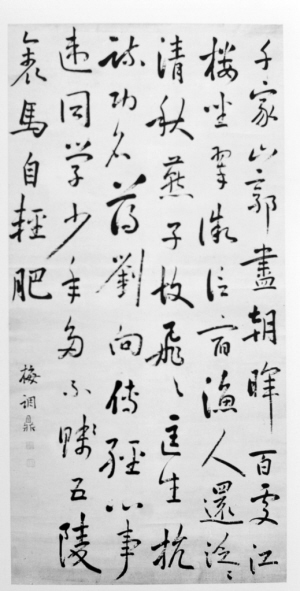 千家山郭盡朝暉百處江
樓坐翠微信宿漁人還泛〻
清秋燕子故飛〻匡生抗
疏功名薄劉向傳經心事
違同学少年多不賤五陵
裘馬自輕肥
梅調鼎